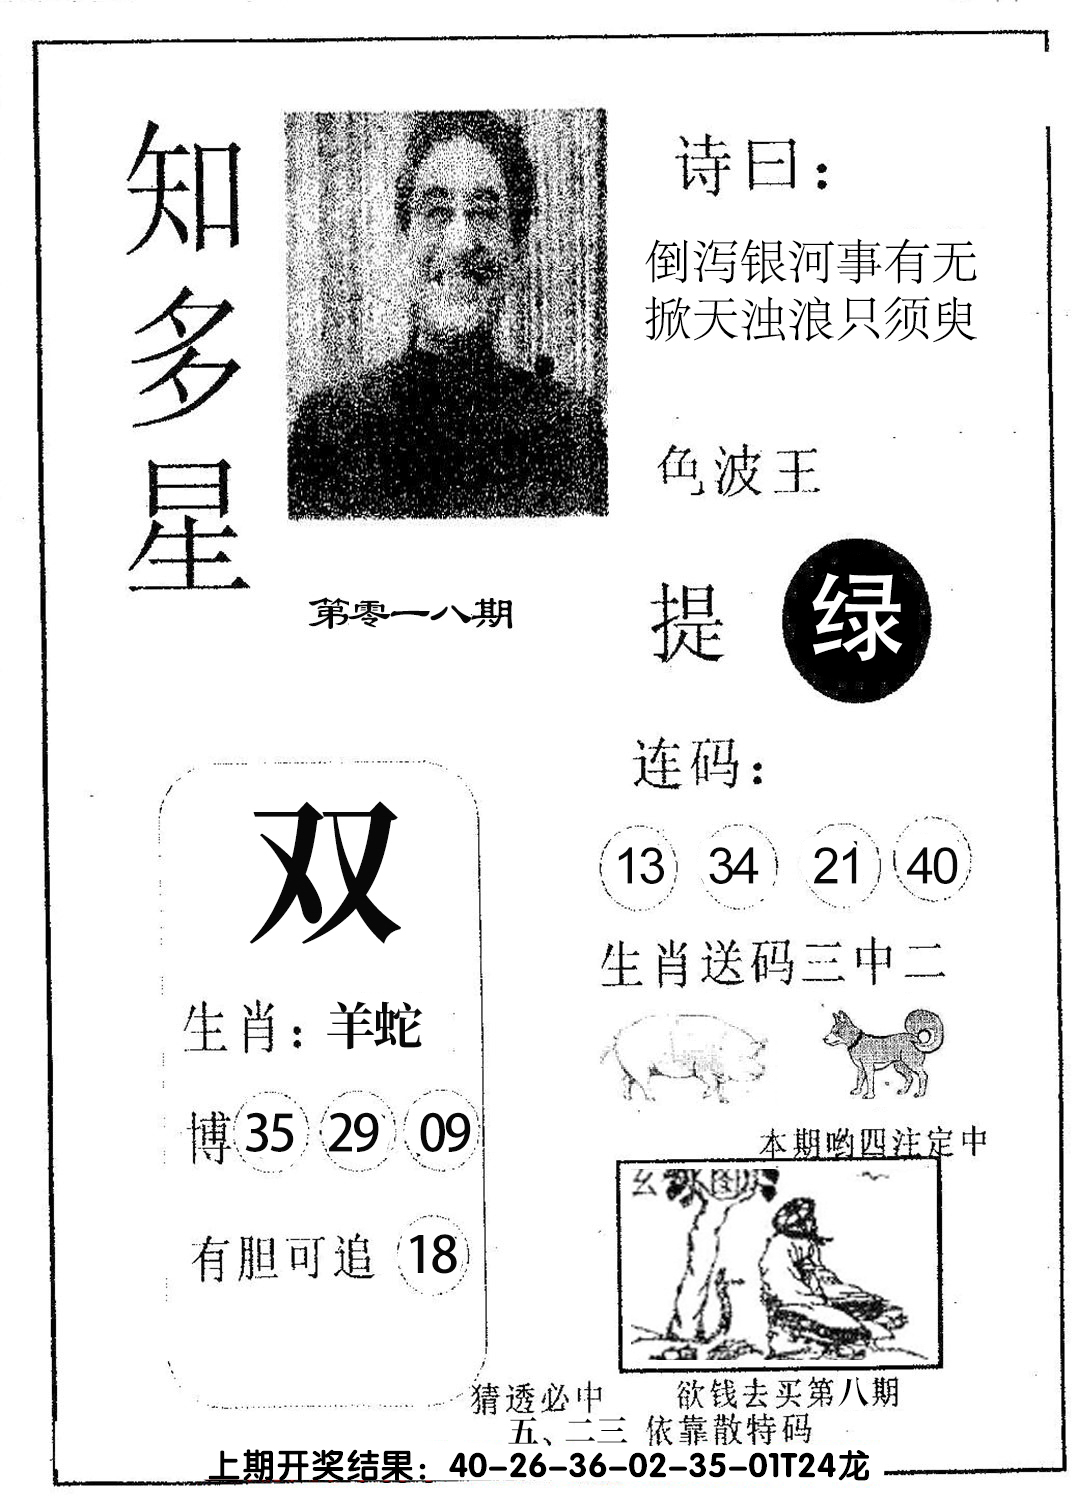 知多星
诗曰：
倒泻银河事有无
掀天浊浪只须臾
色波王
第零一八期
提 绿
连码：
13 34 21 40
双
生肖送码三中二
生肖：羊蛇
博 35 29 09
本期哟四注定中
玄 图
有胆可追 18
猜透必中 欲钱去买第八期
五、二三 依靠散特码
上期开奖结果：40-26-36-02-35-01T24龙